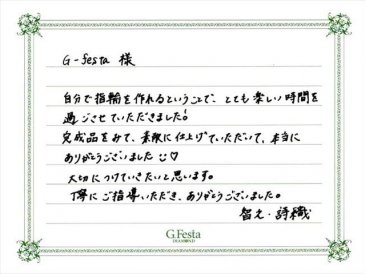 G-festa 様
自分で指輪を作れるということで、とても楽しい時間を
過ごさせていただきました!
完成品をみて、素敵に仕上げていただいて、本当に
ありがとうございました☺♡
大切につけていきたいと思います。
丁寧にご指導いただき、ありがとうございました。
智之・詩織
G.Festa
DIAMOND